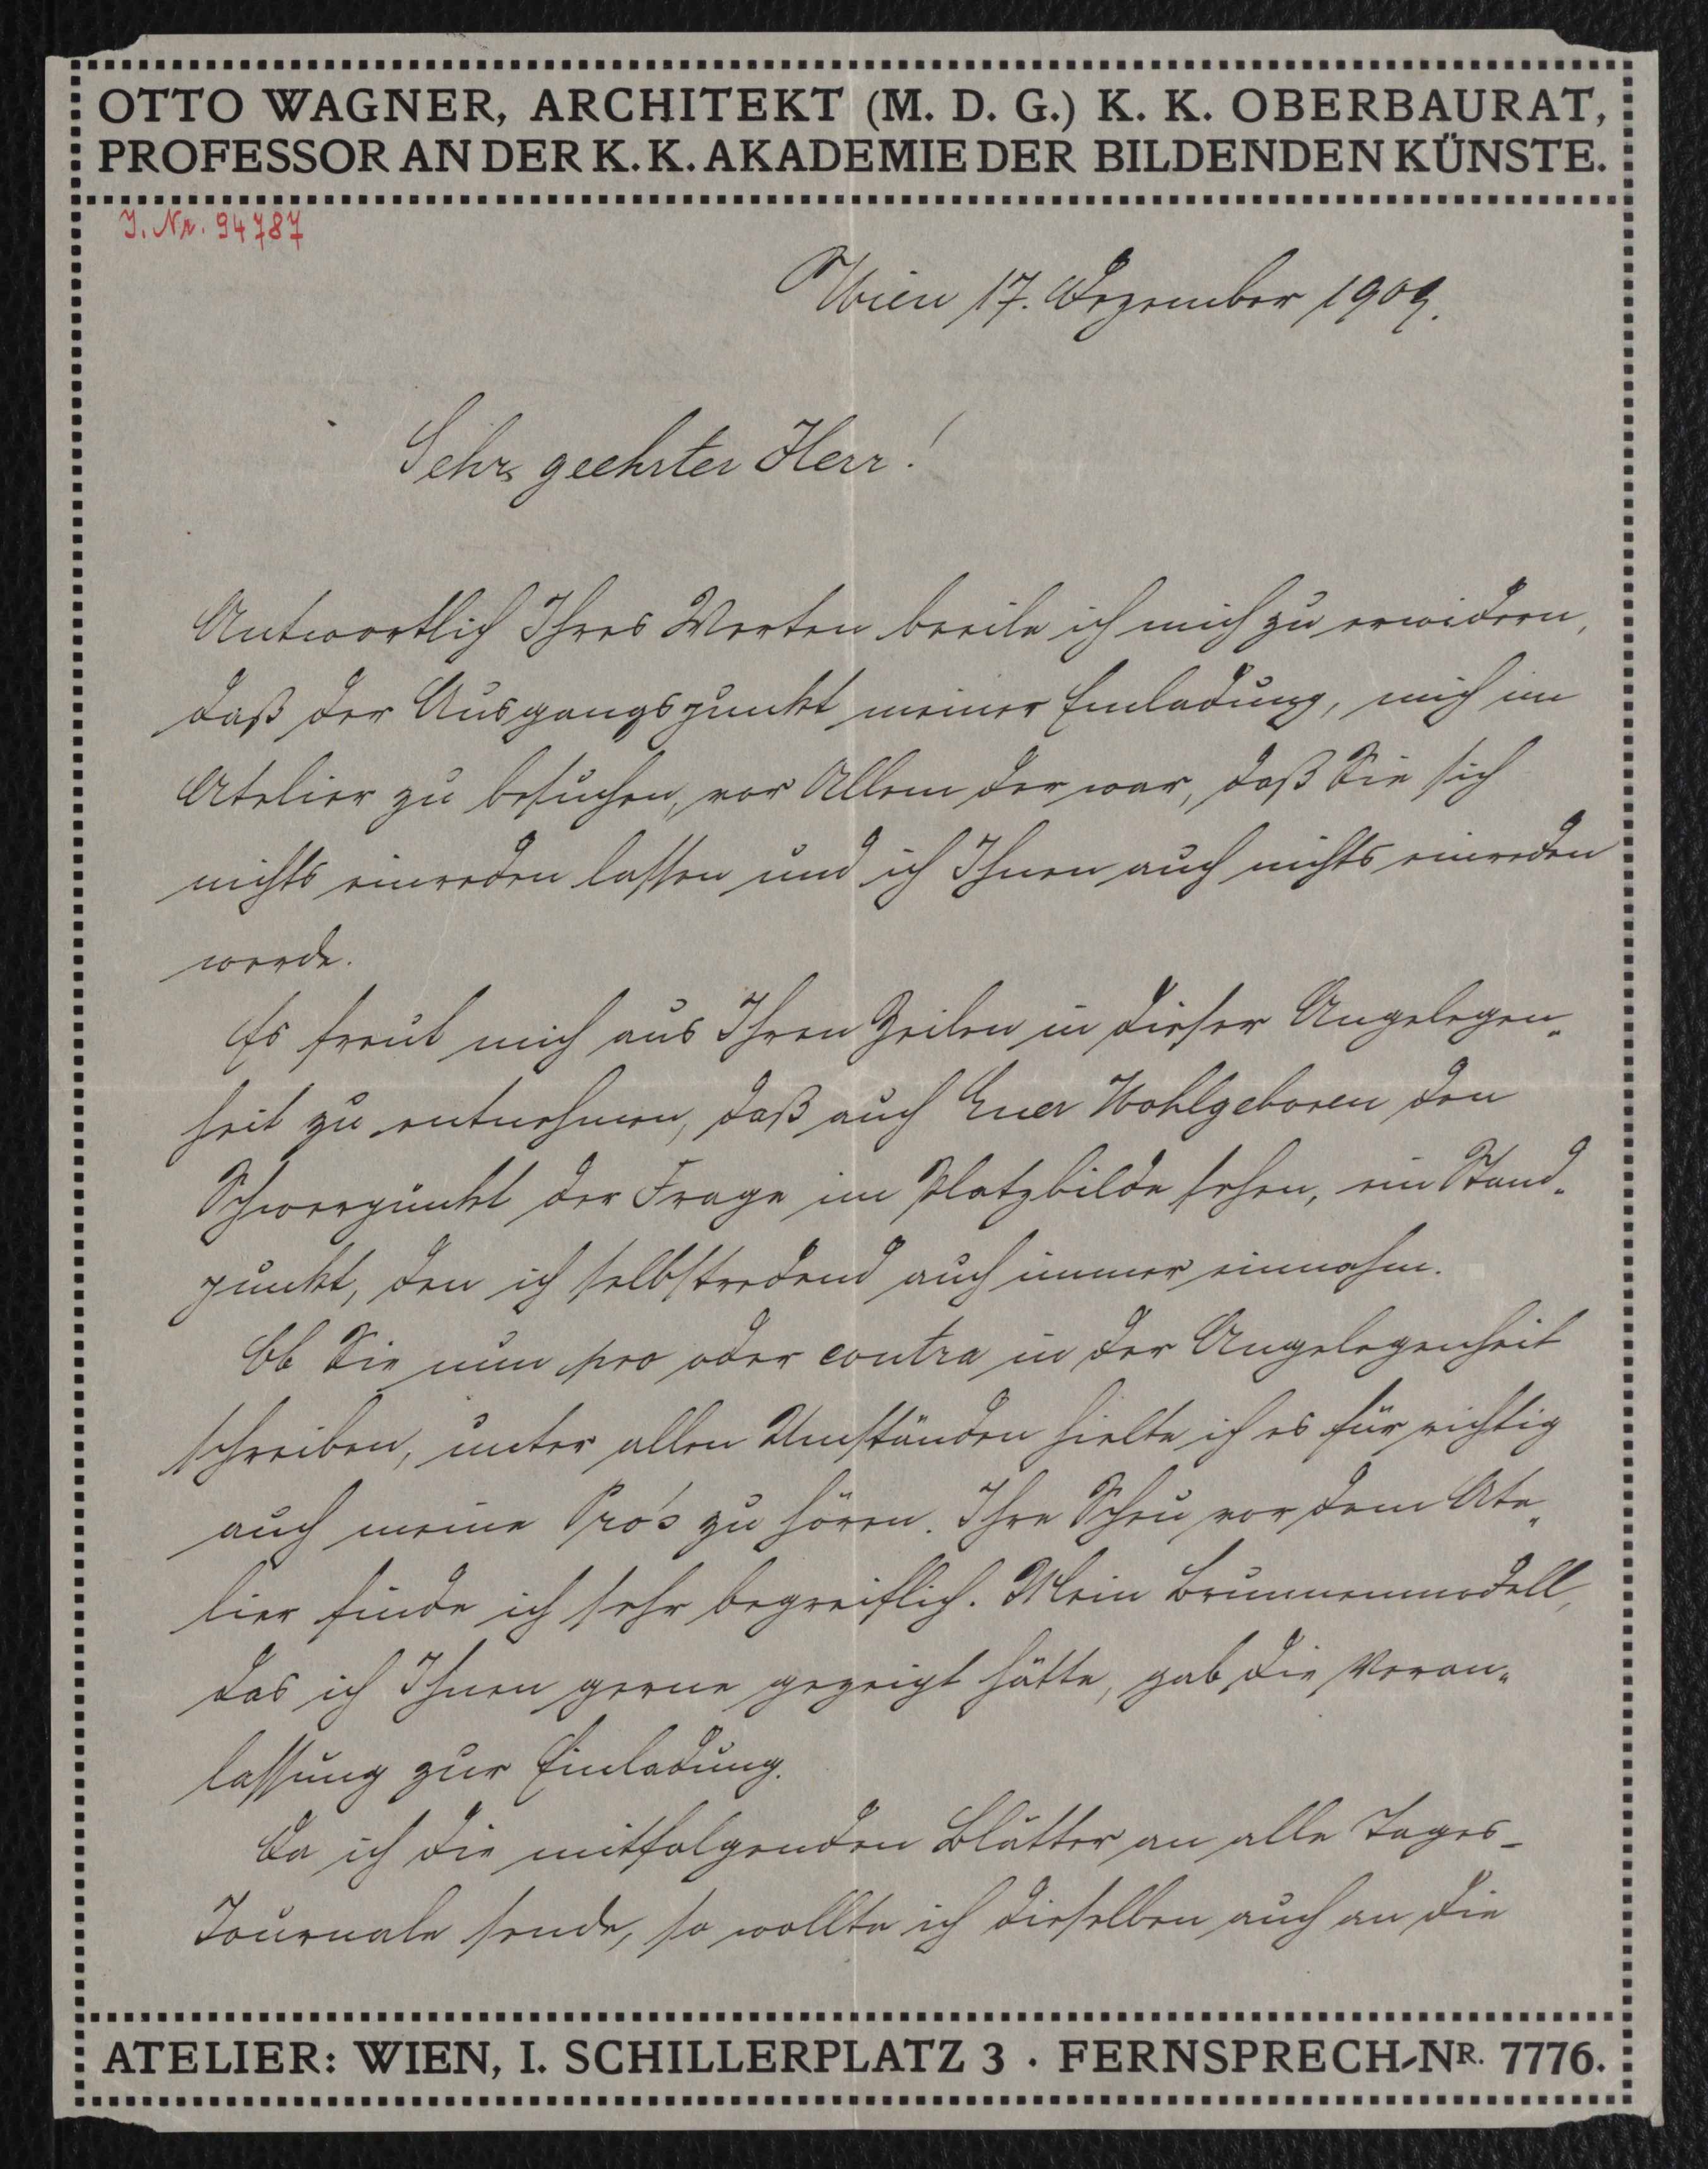 OTTO WAGNER, ARCHITEKT (M. D. G.) K. K. OBERBAURAT,
PROFESSOR AN DER K. K. AKADEMIE DER BILDENDEN KÜNSTE.
J. Nr. 94787
Wien 17. Dezember 1909.
Sehr geehrter Herr!
Antwortlich Ihres Werten beeile ich mich zu erwidern,
daß der Ausgangspunkt meiner Einladung, mich im
Atelier zu besuchen, vor Allem der war, daß Sie sich
nichts einreden lassen und ich Ihnen auch nichts einreden
werde.
Es freut mich aus Ihren Zeilen in dieser Angelegen„
heit zu entnehmen, daß auch Euer Wohlgeboren den
Schwerpunkt der Frage im Platzbilde sehen, ein Stand„
punkt, den ich selbstredend auch immer einnahm.
Ob Sie nun pro oder contra in der Angelegenheit
schreiben, unter allen Umständen hielte ich es für richtig
auch meine Pro's zu hören. Ihre Scheu vor dem Ate„
lier finde ich sehr begreiflich. Mein Brunnenmodell,
das ich Ihnen gerne gezeigt hätte, gab die Veran„
lassung zur Einladung.
Da ich die mitfolgenden Blätter an alle Tages-
Journale sende, so wollte ich dieselben auch an die
ATELIER: WIEN, I. SCHILLERPLATZ 3 · FERNSPRECH-NR. 7776.